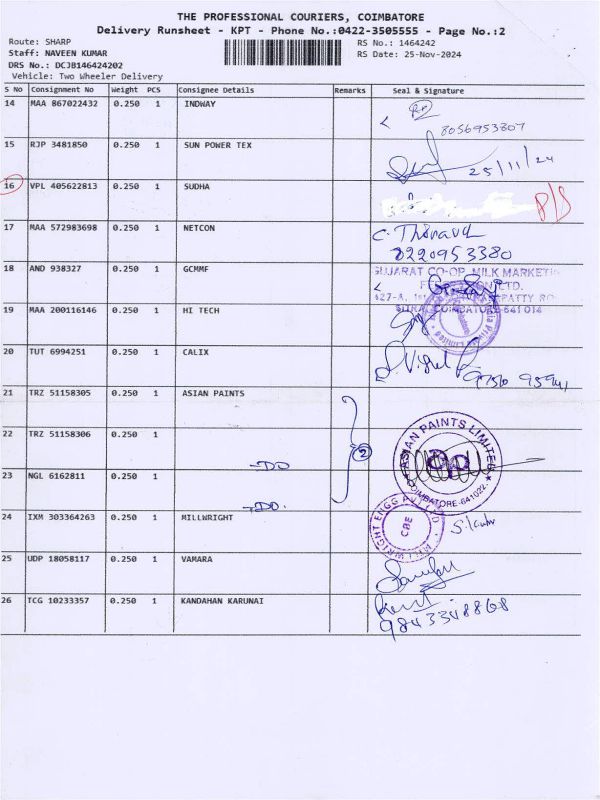 THE PROFESSIONAL COURIERS, COIMBATORE
Delivery Runsheet - KPT - Phone No.:0422-3505555 - Page No.:2
Route: SHARP
RS No.: 1464242
Staff: NAVEEN KUMAR
RS Date: 25-Nov-2024
DRS No.: DCJB146424202
Vehicle: Two Wheeler Delivery
S No Consignment No Weight PCS Consignee Details Remarks Seal & Signature
14 MAA 867022432 0.250 1 INDWAY
8056953307
15 RJP 3481850 0.250 1 SUN POWER TEX
25/11/24
16 VPL 405622813 0.250 1 SUDHA
17 MAA 572983698 0.250 1 NETCON
8220953380
18 AND 938327 0.250 1 GCMMF
GUJARAT CO-OP. MILK MARKETI
LTD.
COIMBATORE-641014
19 MAA 200116146 0.250 1 HI TECH
20 TUT 6994251 0.250 1 CALIX
21 TRZ 51158305 0.250 1 ASIAN PAINTS
22 TRZ 51158306 0.250 1
-DO
2
ASIAN PAINTS LIMITED
COIMBATORE-641022.
23 NGL 6162811 0.250 1
-DO.
24 IXM 303364263 0.250 1 MILLWRIGHT
MILLWRIGHT ENGG
CBE
25 UDP 18058117 0.250 1 VAMARA
26 TCG 10233357 0.250 1 KANDAHAN KARUNAI
9843348868